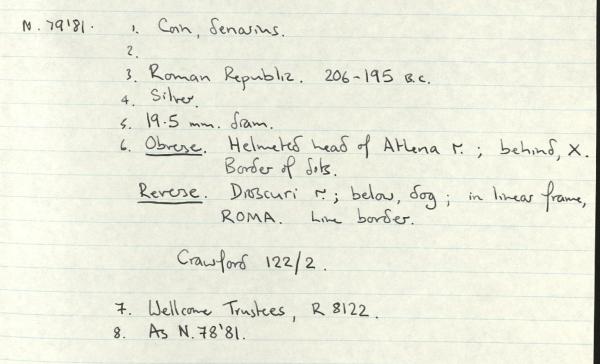 N. 79'81. 1. Coin, denarius.
2.
3. Roman Republic. 206-195 B.C.
4. Silver.
5. 19.5 mm. diam.
6. Obverse. Helmeted head of Athena r. ; behind, X.
Border of dots.
Reverse. Dioscuri r. ; below, dog ; in linear frame,
ROMA. Line border.
Crawford 122/2.
7. Wellcome Trustees, R 8122.
8. As N. 78'81.